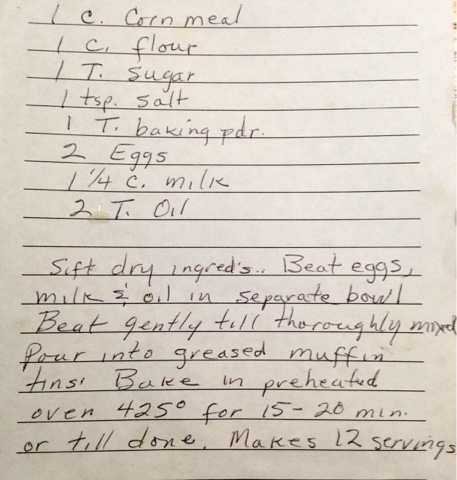 1 C. Corn meal
1 C. flour
1 T. Sugar
1 tsp. salt
1 T. baking pdr.
2 Eggs
1 1/4 C. milk
2 T. Oil
Sift dry ingred's.. Beat eggs,
milk & oil in separate bowl
Beat gently till thoroughly mixed
Pour into greased muffin
tins. Bake in preheated
oven 425° for 15-20 min.
or till done. Makes 12 servings